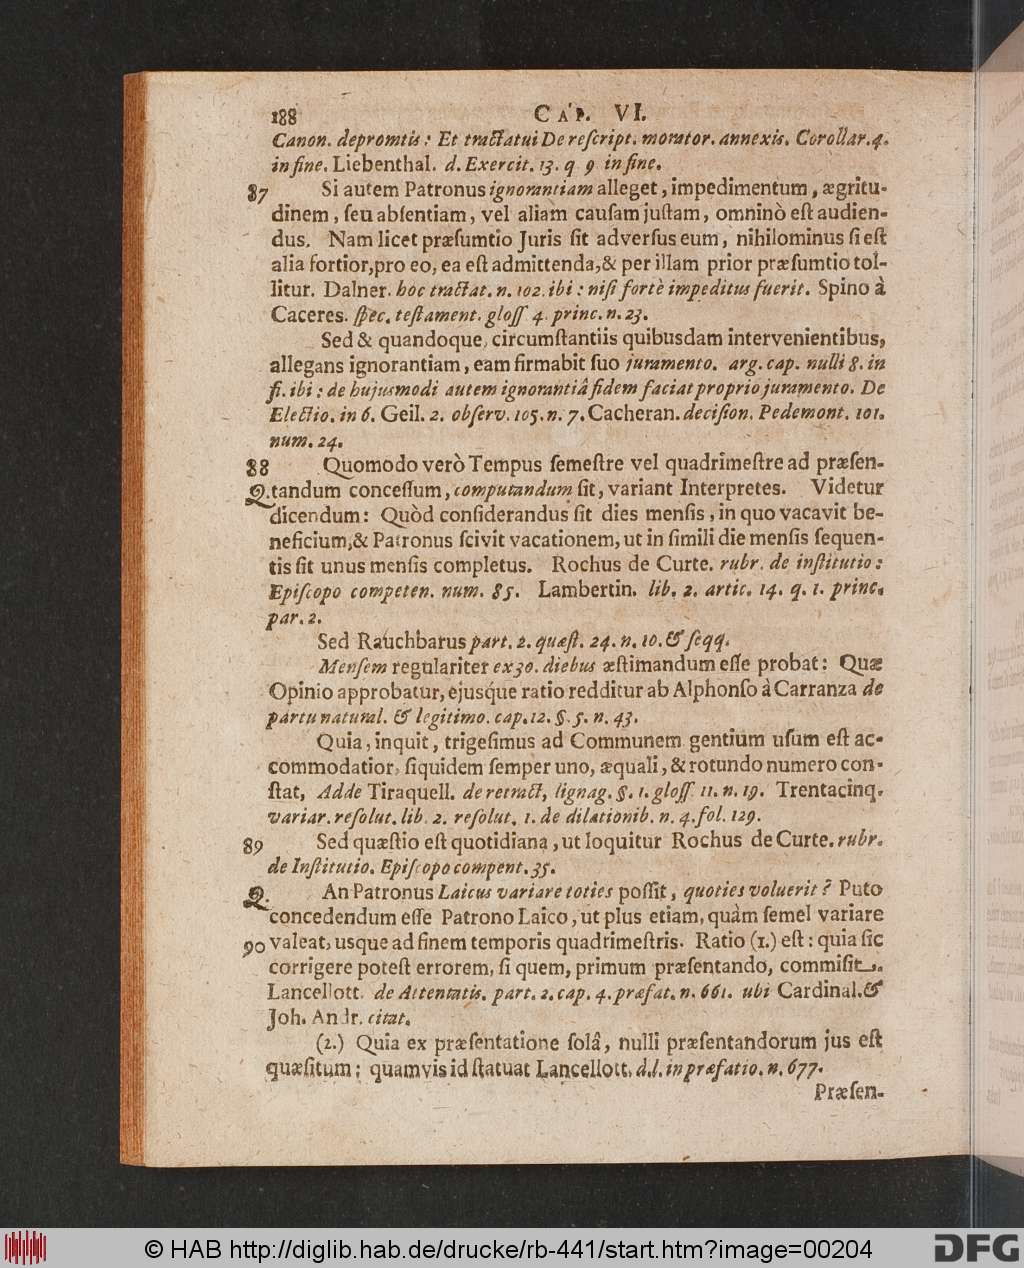 188 CAP. VI.
Canon. depromtis: Et tractatui De reſcript. morator. annexis. Corollar. 4.
in fine. Liebenthal. d. Exercit. 13. q 9 in fine.
87 Si autem Patronus ignorantiam alleget, impedimentum, ægritu-
dinem, ſeu abſentiam, vel aliam cauſam juſtam, omninò eſt audien-
dus. Nam licet præſumtio Juris ſit adverſus eum, nihilominus ſi eſt
alia fortior, pro eo, ea eſt admittenda, & per illam prior præſumtio tol-
litur. Dalner. hoc tractat. n. 102. ibi: niſi fortè impeditus fuerit. Spino à
Caceres. ſpec. teſtament. gloſſ 4. princ. n. 23.
Sed & quandoque, circumſtantiis quibusdam intervenientibus,
allegans ignorantiam, eam firmabit ſuo juramento. arg. cap. nulli 8. in
fi. ibi: de hujusmodi autem ignorantiâ fidem faciat proprio juramento. De
Electio. in 6. Geil. 2. obſerv. 105. n. 7. Cacheran. deciſion. Pedemont. 101.
num. 24.
88 Quomodo verò Tempus ſemeſtre vel quadrimeſtre ad præſen-
Q. tandum conceſſum, computandum ſit, variant Interpretes. Videtur
dicendum: Quòd conſiderandus ſit dies menſis, in quo vacavit be-
neficium, & Patronus ſcivit vacationem, ut in ſimili die menſis ſequen-
tis ſit unus menſis completus. Rochus de Curte. rubr. de inſtitutio:
Epiſcopo competen. num. 85. Lambertin. lib. 2. artic. 14. q. 1. princ.
par. 2.
Sed Rauchbarus part. 2. quæſt. 24. n. 10. & ſeqq.
Menſem regulariter ex 30. diebus æſtimandum eſſe probat: Quæ
Opinio approbatur, ejusq́ue ratio redditur ab Alphonſo à Carranza de
partu natural. & legitimo. cap. 12. §. 5. n. 43.
Quia, inquit, trigeſimus ad Communem gentium uſum eſt ac-
commodatior, ſiquidem ſemper uno, æquali, & rotundo numero con-
ſtat, Adde Tiraquell. de retract, lignag. §. 1. gloſſ. 11. n. 19. Trentacinq.
variar. reſolut. lib. 2. reſolut. 1. de dilationib. n. 4. fol. 129.
89 Sed quæſtio eſt quotidiana, ut loquitur Rochus de Curte. rubr.
de Inſtitutio. Epiſcopo compent. 35.
Q. An Patronus Laicus variare toties poſſit, quoties voluerit? Puto
concedendum eſſe Patrono Laico, ut plus etiam, quàm ſemel variare
90 valeat, usque ad finem temporis quadrimeſtris. Ratio (1.) eſt: quia ſic
corrigere poteſt errorem, ſi quem, primum præſentando, commiſit.
Lancellott. de Attentatis. part. 2. cap. 4. præfat. n. 661. ubi Cardinal. &
Joh. Andr. citat.
(2.) Quia ex præſentatione ſolâ, nulli præſentandorum jus eſt
quæſitum; quamvis id ſtatuat Lancellott. d. l. in præfatio. n. 677.
Præſen-
© HAB http://diglib.hab.de/drucke/rb-441/start.htm?image=00204
DFG